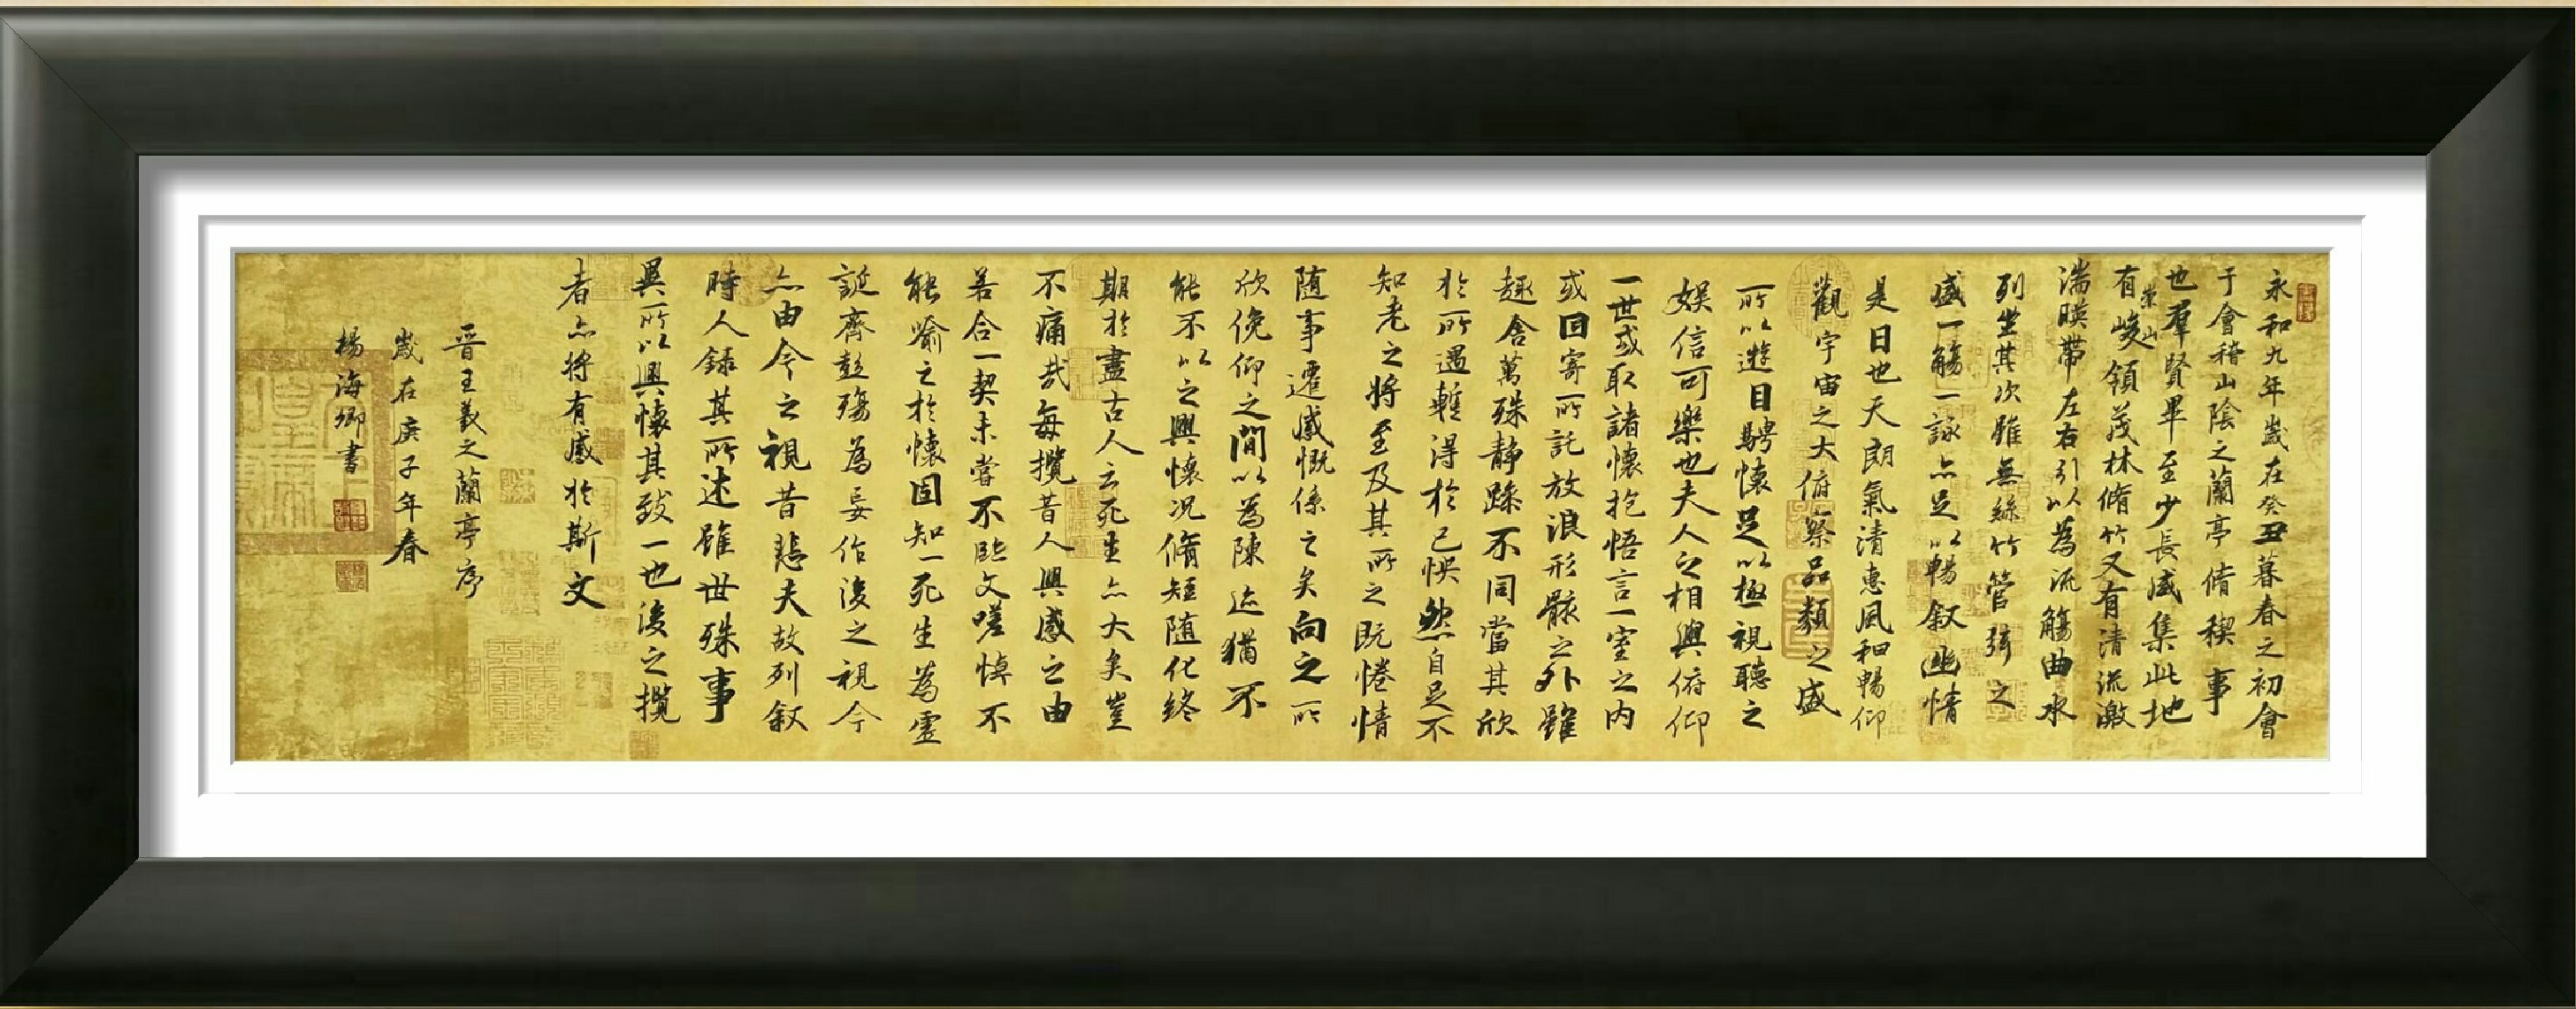 永和九年歲在癸丑暮春之初會
于會稽山陰之蘭亭脩稧事
也羣賢畢至少長咸集此地
有崇山峻領茂林脩竹又有清流激
湍暎帶左右引以為流觴曲水
列坐其次雖無絲竹管弦之
盛一觴一詠亦足以暢叙幽情
是日也天朗氣清惠風和暢仰
觀宇宙之大俯察品類之盛
所以遊目騁懷足以極視聽之
娛信可樂也夫人之相與俯仰
一世或取諸懷抱悟言一室之內
或因寄所託放浪形骸之外雖
趣舍萬殊静躁不同當其欣
於所遇暫得於己怏然自足不
知老之將至及其所之既惓情
随事遷感慨係之矣向之所
欣俛仰之間以為陳迹猶不
能不以之興懷況脩短随化終
期於盡古人云死生亦大矣豈
不痛哉每攬昔人興感之由
若合一契未嘗不臨文嗟悼不
能喻之於懷固知一死生為虛
誕齊彭殤為妄作後之視今
亦由今之視昔悲夫故列叙
時人錄其所述雖世殊事
異所以興懷其致一也後之攬
者亦將有感於斯文
晋王羲之蘭亭序
歲在庚子年春
楊海卿書